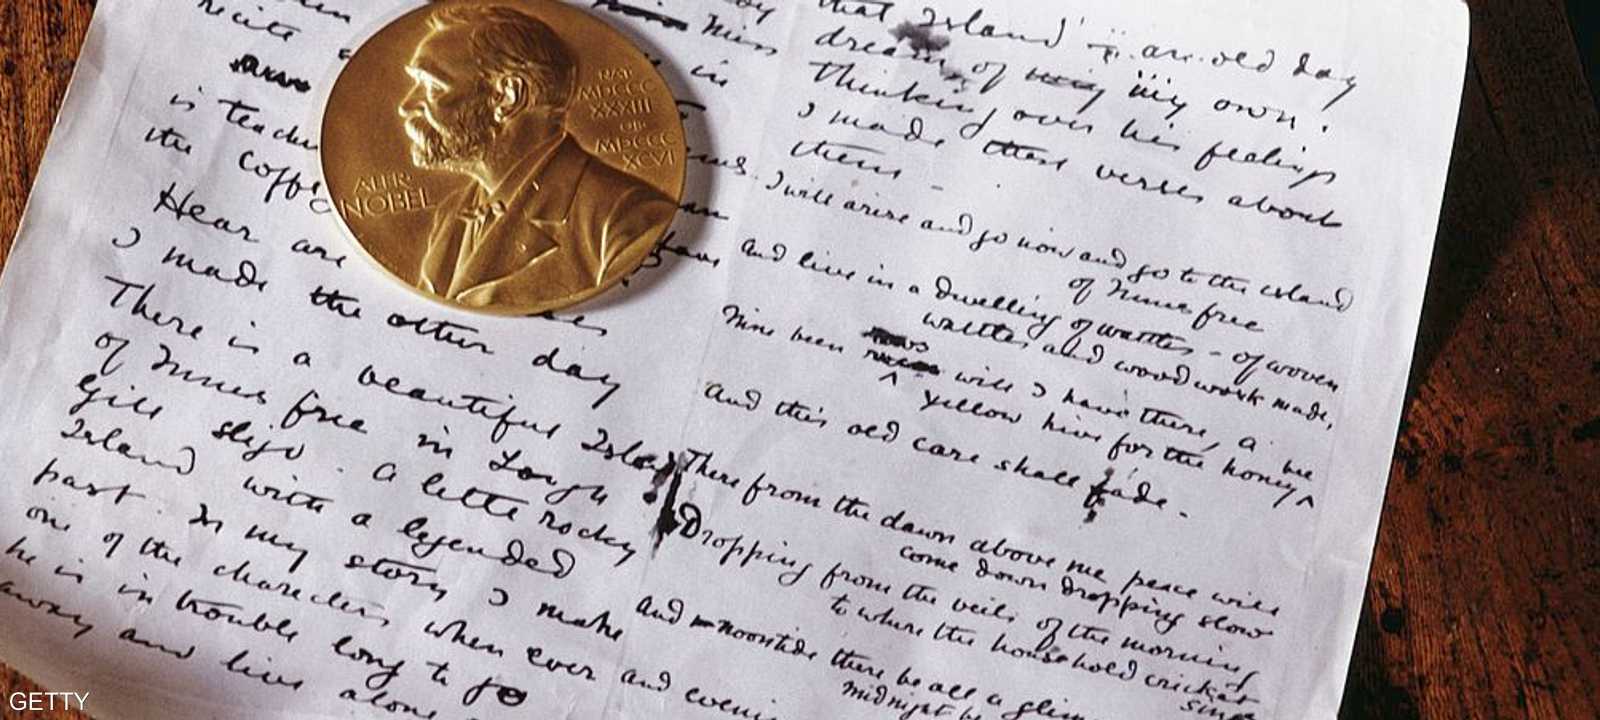 recite
is teache
the coffe
Hear are
I made the other day
There is a beautiful Island
of Innis free in Lough
Gill Sligo. A little rocky
Island with a legended
past. In my story I make
one of the characters when ever
he is in trouble long to go
away and live alone
Miss
in
ALFR.
NOBEL
NAT.
MDCCC
XXXIII
OB.
MDCCC
XCVI
that Island - an old day
dream of my my own.
Thinking over his feelings
I made these verses about
them -
I will arise and go now and go to the island
of Innis free
And live in a dwelling of wattles - of woven
wattles and wood work made,
Nine been rows will I have there, a
yellow hive for the honey bee
And this old care shall fade.
There from the dawn above me peace will
come down dropping slow
Dropping from the veils of the morning
to where the household cricket
sings
And noontide there be all a glimmer
midnight be
and evening
GETTY